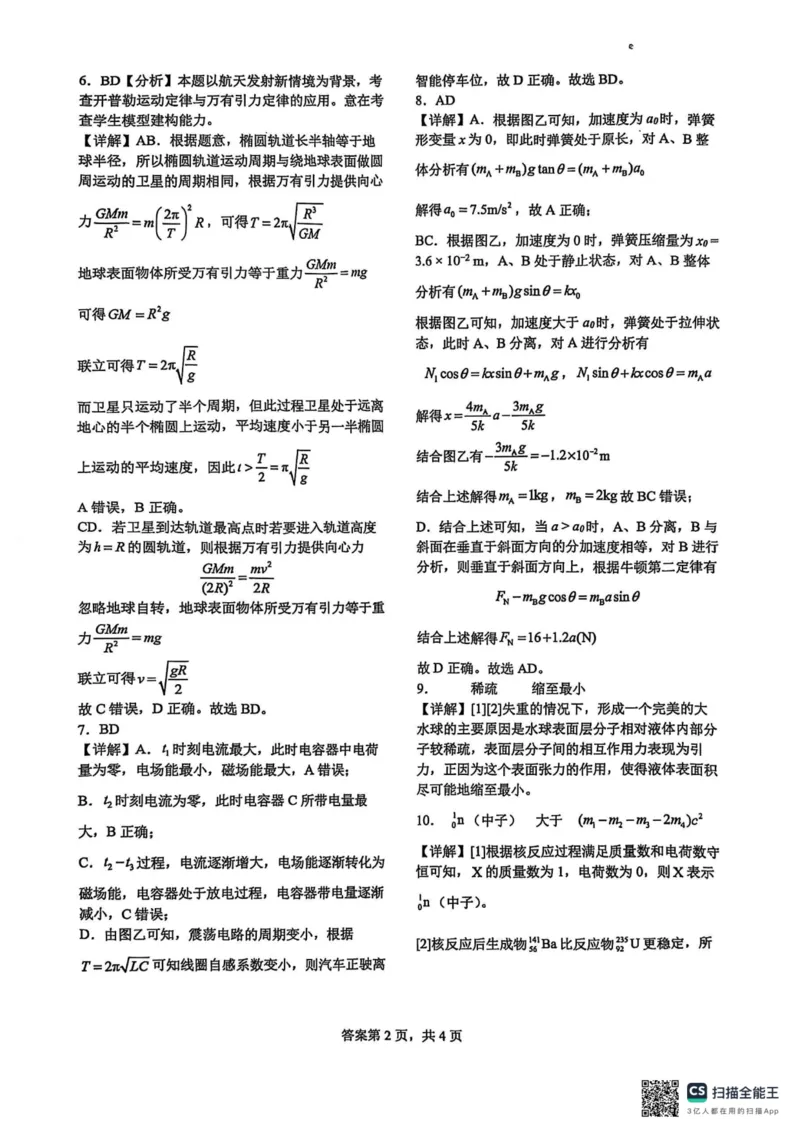 6. BD【分析】本题以航天发射新情境为背景，考
查开普勒运动定律与万有引力定律的应用。意在考
查学生模型建构能力。
【详解】AB．根据题意，椭圆轨道长半轴等于地
球半径，所以椭圆轨道运动周期与绕地球表面做圆
周运动的卫星的周期相同，根据万有引力提供向心
力 GMm/R² = m(2π/T)²R，可得T = 2π√(R³/GM)
地球表面物体所受万有引力等于重力 GMm/R² = mg
可得GM = R²g
联立可得T = 2π√(R/g)
而卫星只运动了半个周期，但此过程卫星处于远离
地心的半个椭圆上运动，平均速度小于另一半椭圆
上运动的平均速度，因此t > T/2 = π√(R/g)
A 错误，B 正确。
CD．若卫星到达轨道最高点时若要进入轨道高度
为h = R的圆轨道，则根据万有引力提供向心力
GMm/(2R)² = mv²/2R
忽略地球自转，地球表面物体所受万有引力等于重
力 GMm/R² = mg
联立可得v = √(gR/2)
故 C 错误，D 正确。故选 BD。
7. BD
【详解】A．t₁ 时刻电流最大，此时电容器中电荷
量为零，电场能最小，磁场能最大，A 错误；
B．t₂ 时刻电流为零，此时电容器 C 所带电量最
大，B 正确；
C．t₂－t₃过程，电流逐渐增大，电场能逐渐转化为
磁场能，电容器处于放电过程，电容器带电量逐渐
减小，C 错误；
D．由图乙可知，震荡电路的周期变小，根据
T = 2π√LC 可知线圈自感系数变小，则汽车正驶离
智能停车位，故 D 正确。故选 BD。
8. AD
【详解】A．根据图乙可知，加速度为 a₀时，弹簧
形变量 x 为 0，即此时弹簧处于原长，对 A、B 整
体分析有(m_A + m_B)g tanθ = (m_A + m_B)a₀
解得a₀ = 7.5m/s²，故 A 正确；
BC．根据图乙，加速度为 0 时，弹簧压缩量为 x₀=
3.6 × 10⁻² m，A、B 处于静止状态，对 A、B 整体
分析有(m_A + m_B)g sinθ = kx₀
根据图乙可知，加速度大于 a₀时，弹簧处于拉伸状
态，此时 A、B 分离，对 A 进行分析有
N₁cosθ = kx sinθ + m_A g，N₁sinθ + kx cosθ = m_A a
解得x = 4m_A/5k a − 3m_A g/5k
结合图乙有− 3m_A g/5k = −1.2×10⁻² m
结合上述解得m_A = 1kg，m_B = 2kg故 BC 错误；
D．结合上述可知，当 a > a₀时，A、B 分离，B 与
斜面在垂直于斜面方向的分加速度相等，对 B 进行
分析，则垂直于斜面方向上，根据牛顿第二定律有
F_N − m_B g cosθ = m_B a sinθ
结合上述解得F_N = 16+1.2a(N)
故 D 正确。故选 AD。
9. 稀疏 缩至最小
【详解】[1][2]失重的情况下，形成一个完美的大
水球的主要原因是水球表面层分子相对液体内部分
子较稀疏，表面层分子间的相互作用力表现为引
力，正因为这个表面张力的作用，使得液体表面积
尽可能地缩至最小。
10. ¹₀n（中子） 大于 (m₁−m₂−m₃−2m₄)c²
【详解】[1]根据核反应过程满足质量数和电荷数守
恒可知，X 的质量数为 1，电荷数为 0，则 X 表示
¹₀n（中子）。
[2]核反应后生成物¹⁴¹₅₆Ba 比反应物²³⁵₉₂U 更稳定，所
答案第 2 页，共 4 页
CS 扫描全能王
3亿人都在用的扫描App